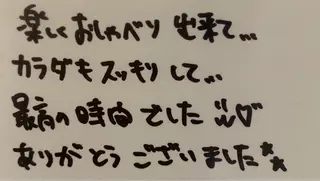 楽しくおしゃべり出来て...
カラダもスッキリして...
最高の時間でした
ありがとうございました